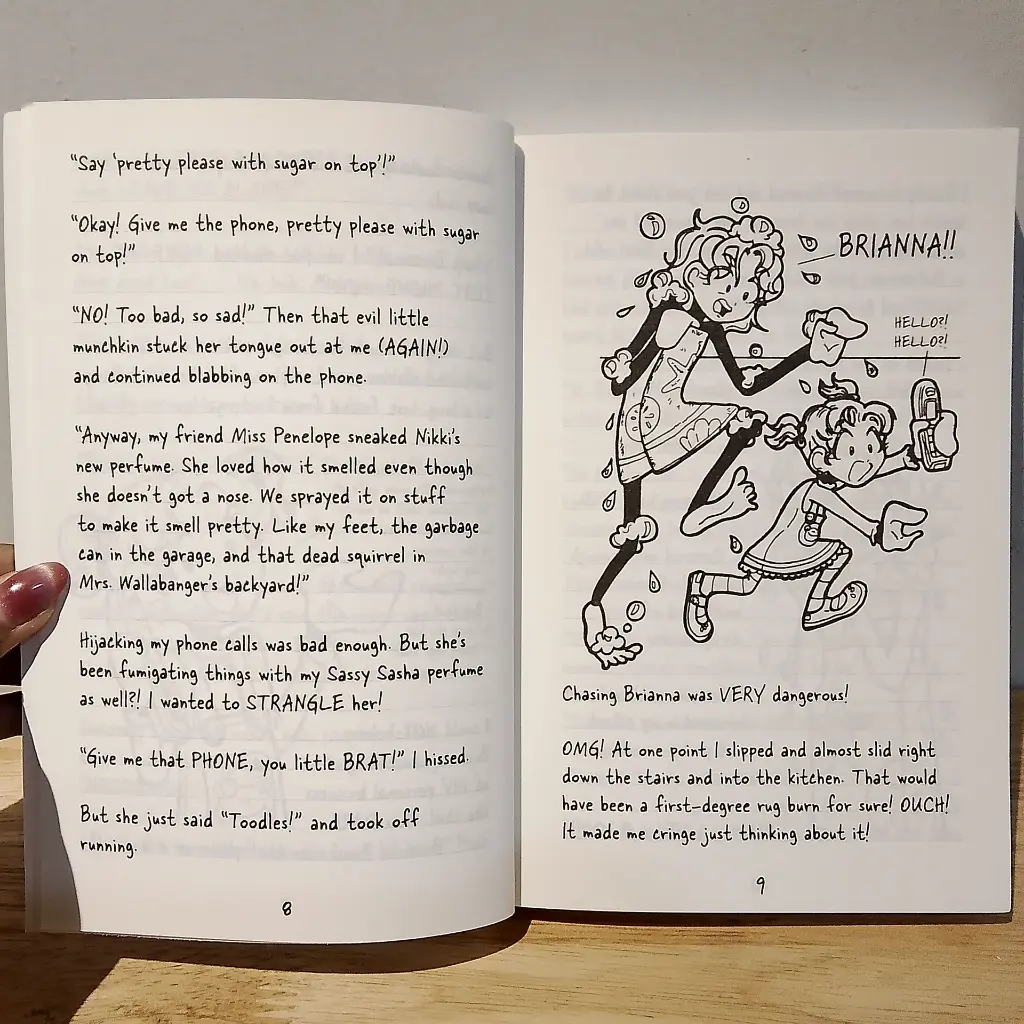 "Say 'pretty please with sugar on top'!"
"Okay! Give me the phone, pretty please with sugar
on top!"
"NO! Too bad, so sad!" Then that evil little
munchkin stuck her tongue out at me (AGAIN!)
and continued blabbing on the phone.
"Anyway, my friend Miss Penelope sneaked Nikki's
new perfume. She loved how it smelled even though
she doesn't got a nose. We sprayed it on stuff
to make it smell pretty. Like my feet, the garbage
can in the garage, and that dead squirrel in
Mrs. Wallabanger's backyard!"
Hijacking my phone calls was bad enough. But she's
been fumigating things with my Sassy Sasha perfume
as well?! I wanted to STRANGLE her!
"Give me that PHONE, you little BRAT!" I hissed.
But she just said "Toodles!" and took off
running.
8
BRIANNA!!
HELLO?!
HELLO?!
Chasing Brianna was VERY dangerous!
OMG! At one point I slipped and almost slid right
down the stairs and into the kitchen. That would
have been a first-degree rug burn for sure! OUCH!
It made me cringe just thinking about it!
9